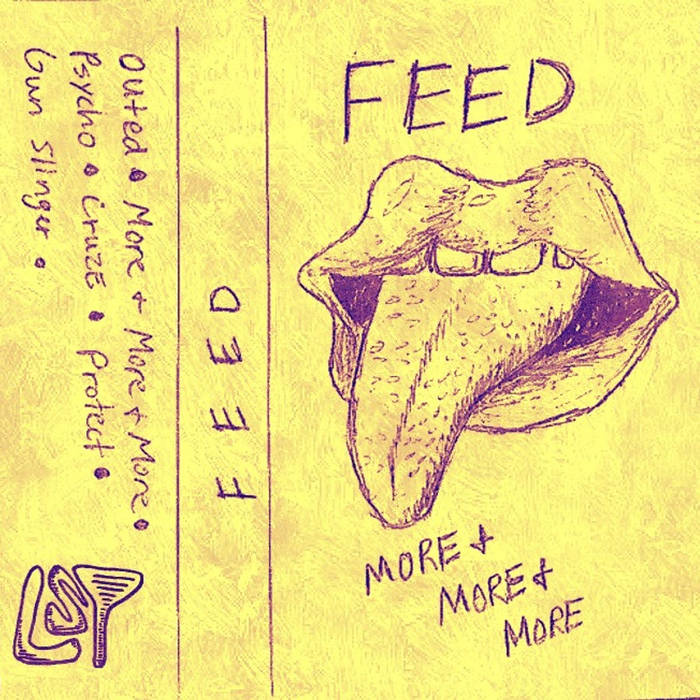 FEED
MORE &
MORE &
MORE
FEED
Outed • More & More & More •
Psycho • Cruze • Protect •
Gun Slinger •